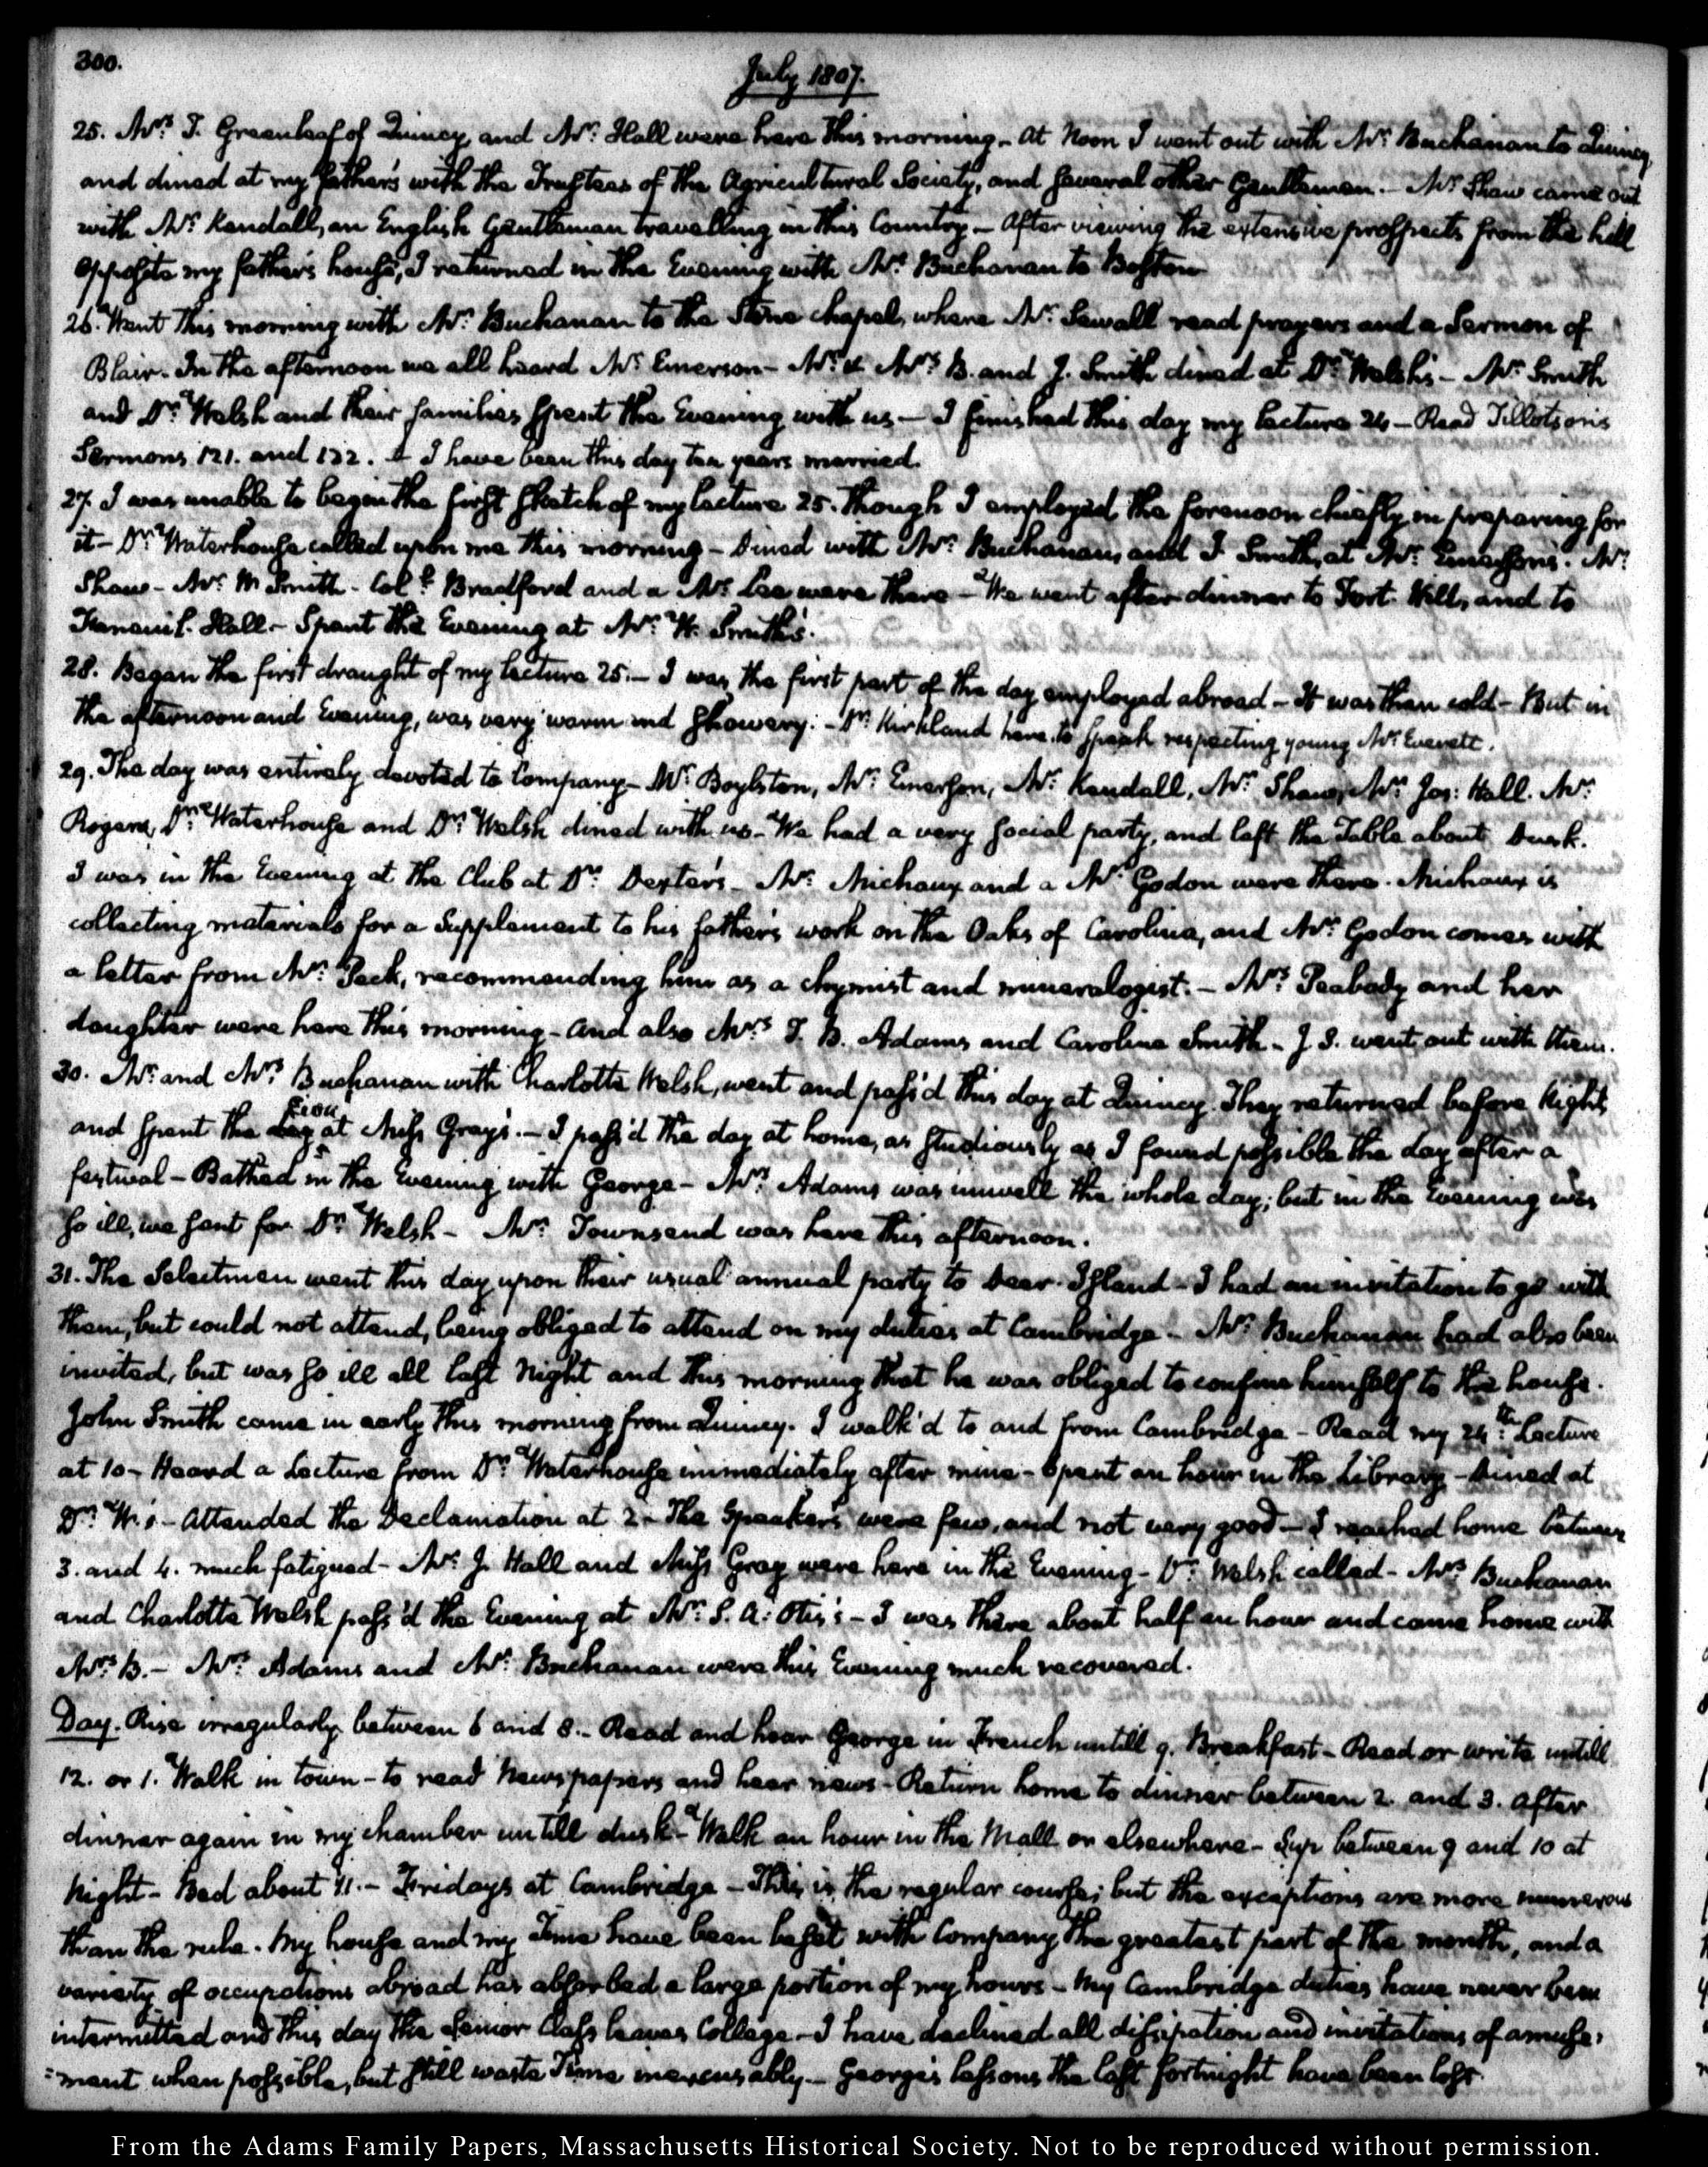 300.
July 1807.
25. Mrs. T. Greenleaf of Quincy, and Mr. Hall were here this morning - At Noon I went out with Mr. Buchanan to Quincy,
and dined at my father's with the Trustees of the Agricultural Society, and several other Gentlemen. - Mr. Shaw came out
with Mr. Kendall, an English Gentleman travelling in this Country - After viewing the extensive prospects from the hill
opposite my father's house, I returned in the Evening with Mr. Buchanan to Boston
26. Went this morning with Mr. Buchanan to the Stone chapel, where Mr. Sewall read prayers and a Sermon of
Blair. In the afternoon we all heard Mr. Emerson - Mr. & Mrs. B. and J. Smith dined at Dr. Welsh's - Mr. Smith
and Dr. Welsh and their families spent the Evening with us - I finished this day my lecture 24 - Read Tillotson's
Sermons 121. and 122. I have been this day ten years married.
27. I was unable to begin the first sketch of my lecture 25. though I employed the forenoon chiefly in preparing for
it - Dr. Waterhouse called upon me this morning - Dined with Mr. Buchanan, and J. Smith, at Mr. Emerson's. Mr.
Shaw - Mr. W Smith - Coll. Bradford and a Mr. Lee were there - We went after dinner to Fort Hill, and to
Faneuil Hall - Spent the Evening at Mr. W. Smith's.
28. Began the first draught of my lecture 25. - I was the first part of the day employed abroad - It was then cold - But in
the afternoon and Evening, was very warm and showery. - Dr. Kirkland here to speak respecting young Mr. Everett.
29. The day was entirely devoted to Company - Mr. Boylston, Mr. Emerson, Mr. Kendall, Mr. Shaw, Mr. Jos: Hall. Mr.
Rogers, Dr. Waterhouse and Dr. Welsh dined with us - We had a very social party, and left the Table about Dusk.
I was in the Evening at the Club at Dr. Dexter's - Mr. Michaux and a Mr. Godon were there. Michaux is
collecting materials for a Supplement to his father's work on the Oaks of Carolina, and Mr. Godon comes with
a letter from Mr. Peck, recommending him as a chymist and mineralogist. - Mrs. Peabody and her
daughter were here this morning - And also Mrs. T. B. Adams and Caroline Smith - J S. went out with them.
30. Mr. and Mrs. Buchanan with Charlotte Welsh, went and pass'd this day at Quincy. They returned before Night,
and spent the day at Miss Gray's. - I pass'd the day at home, as studiously as I found possible the day after a
festival - Bathed in the Evening with George - Mrs. Adams was unwell the whole day; but in the Evening was
so ill, we sent for Dr. Welsh - Mr. Townsend was here this afternoon.
31. The Selectmen went this day upon their usual annual party to Deer-Island - I had an invitation to go with
them, but could not attend, being obliged to attend on my duties at Cambridge - Mr. Buchanan had also been
invited, but was so ill all last Night and this morning that he was obliged to confine himself to the house.
John Smith came in early this morning from Quincy. I walk'd to and from Cambridge - Read my 24th. Lecture
at 10 - Heard a Lecture from Dr. Waterhouse immediately after mine - Spent an hour in the Library - Dined at
Dr. W's - Attended the Declamation at 2 - The Speakers were few, and not very good - I reached home between
3. and 4. much fatigued - Mr. J. Hall and Miss Gray were here in the Evening - Dr. Welsh called - Mrs. Buchanan
and Charlotte Welsh pass'd the Evening at Mr. S. A: Otis's - I was there about half an hour and came home with
Mrs. B. - Mrs. Adams and Mr. Buchanan were this Evening much recovered.
Day. Rise irregularly between 6 and 8. - Read and hear George in French untill 9. Breakfast - Read or write untill
12. or 1. Walk in town - to read Newspapers and hear news - Return home to dinner between 2. and 3. After
dinner again in my chamber untill dusk - Walk an hour in the Mall or elsewhere - Sup between 9 and 10 at
Night - Bed about 11. - Fridays at Cambridge - This is the regular course; but the exceptions are more numerous
than the rule. My house and my Time have been beset with Company the greatest part of the month, and a
variety of occupations abroad has absorbed a large portion of my hours - My Cambridge duties have never been
intermitted and this day the Senior Class leaves College - I have declined all dissipation and invitations of amuse:
=ment when possible, but still waste Time inexcusably - George's lessons the last fortnight have been lost.
From the Adams Family Papers, Massachusetts Historical Society. Not to be reproduced without permission.